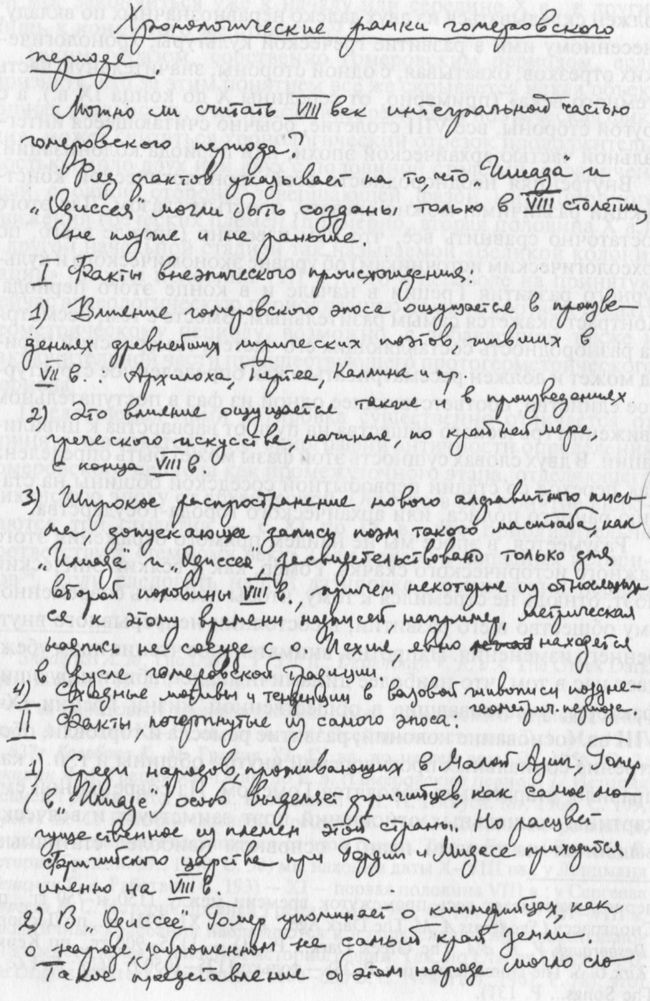 Хронологические рамки гомеровского
периода.
Можно ли считать VIII век интегральной частью
гомеровского периода?
Ряд фактов указывает на то, что „Илиада" и
„Одиссея" могли быть созданы только в VIII столетии,
Они позже и не раньше.
I Факты внеэпического происхождения:
1) Влияние гомеровского эпоса ощущается в произве-
дениях древнейших лирических поэтов, живших в
VII в.: Архилоха, Тиртея, Каллина и пр.
2) Это влияние ощущается также и в произведениях
греческого искусства, начиная, по крайней мере,
с конца VIII в.
3) Широкое распространение нового алфавитного пись-
ма, допускающее запись поэм такого масштаба, как
„Илиада" и „Одиссея", засвидетельствовано только для
второй половины VIII в., причем некоторые из относящих
ся к этому времени надписей например, метрическая
надпись на сосуде с о. Исхия, явно находятся
в русле гомеровской традиции.
4) Сходные мотивы и тенденции в вазовой живописи поздне-
геометрич. периода.
II Факты почерпнутые из самого эпоса:
1) Среди народов, проживающих в Малой Азии, Гомер
(в „Илиаде") особо выделяет фригийцев, как самое мо-
гущественное из племен этой страны. Но расцвет
Фригийского царства при Гордии и Мидасе приходится
именно на VIII в.
2) В „Одиссее" Гомер упоминает о киммерийцах, как
о народе, заброшенном на самый край земли
Такое представление об этом народе могло сло